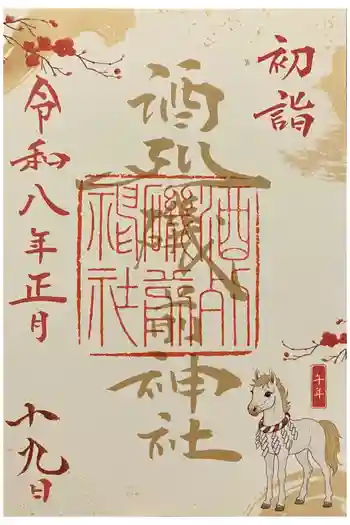 初詣
酒列磯前神社
酒列
磯前
神社
令和八年正月
十九日
午年